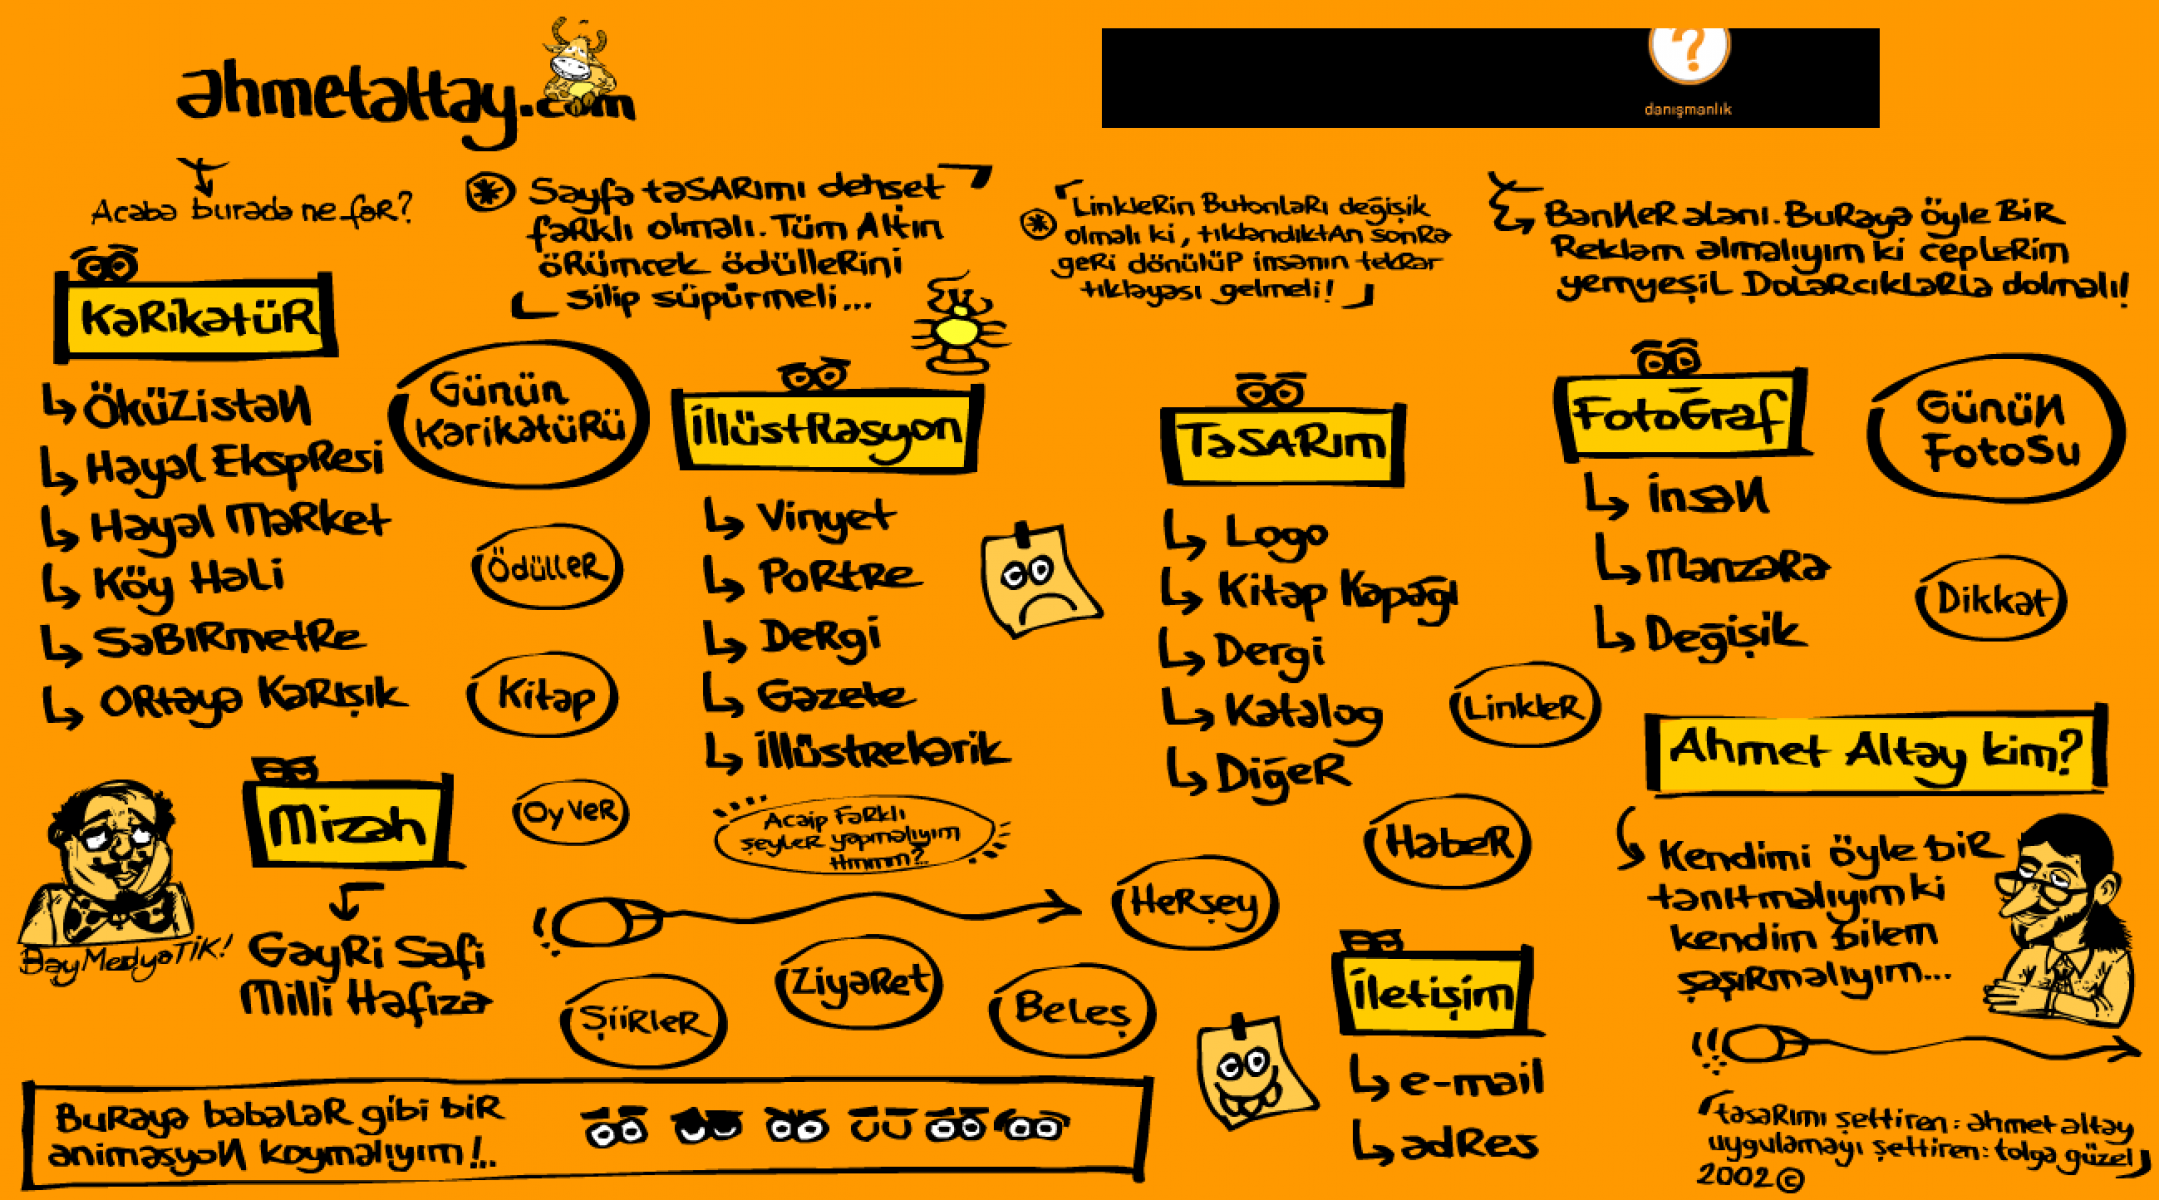 ahmetaltay.com
danışmanlık
Acaba burada ne var?
* Sayfa tasarımı dehşet
farklı olmalı. Tüm Altın
örümcek ödüllerini
silip süpürmeli...
* Linklerin Butonları değişik
olmalı ki, tıklandıktan sonra
geri dönülüp insanın tekrar
tıklayası gelmeli!
Banner alanı. Buraya öyle bir
Reklam almalıyım ki ceplerim
yemyeşil Dolarcıklarla dolmalı!
Karikatür
Öküzistan
Hayal Ekspresi
Hayal Market
Köy Hali
Sabırmetre
Ortaya Karışık
Günün
Karikatürü
Ödüller
Kitap
Oy Ver
İllüstrasyon
Vinyet
Portre
Dergi
Gazete
İllüstrelerik
Acaip Farklı
şeyler yapmalıyım
Hmmm?..
Tasarım
Logo
Kitap Kapağı
Dergi
Katalog
Diğer
Linkler
Haber
Herşey
Fotoğraf
İnsan
Manzara
Değişik
Günün
Fotosu
Dikkat
Ahmet Altay kim?
Kendimi öyle bir
tanıtmalıyım ki
kendim bilem
şaşırmalıyım...
Mizah
Gayri Safi
Milli Hafıza
Bay MedyaTİK!
Şiirler
Ziyaret
Beleş
İletişim
e-mail
adres
Buraya babalar gibi bir
animasyon koymalıyım!..
tasarımı şettiren: ahmet altay
uygulamayı şettiren: tolga güzel
2002 ©